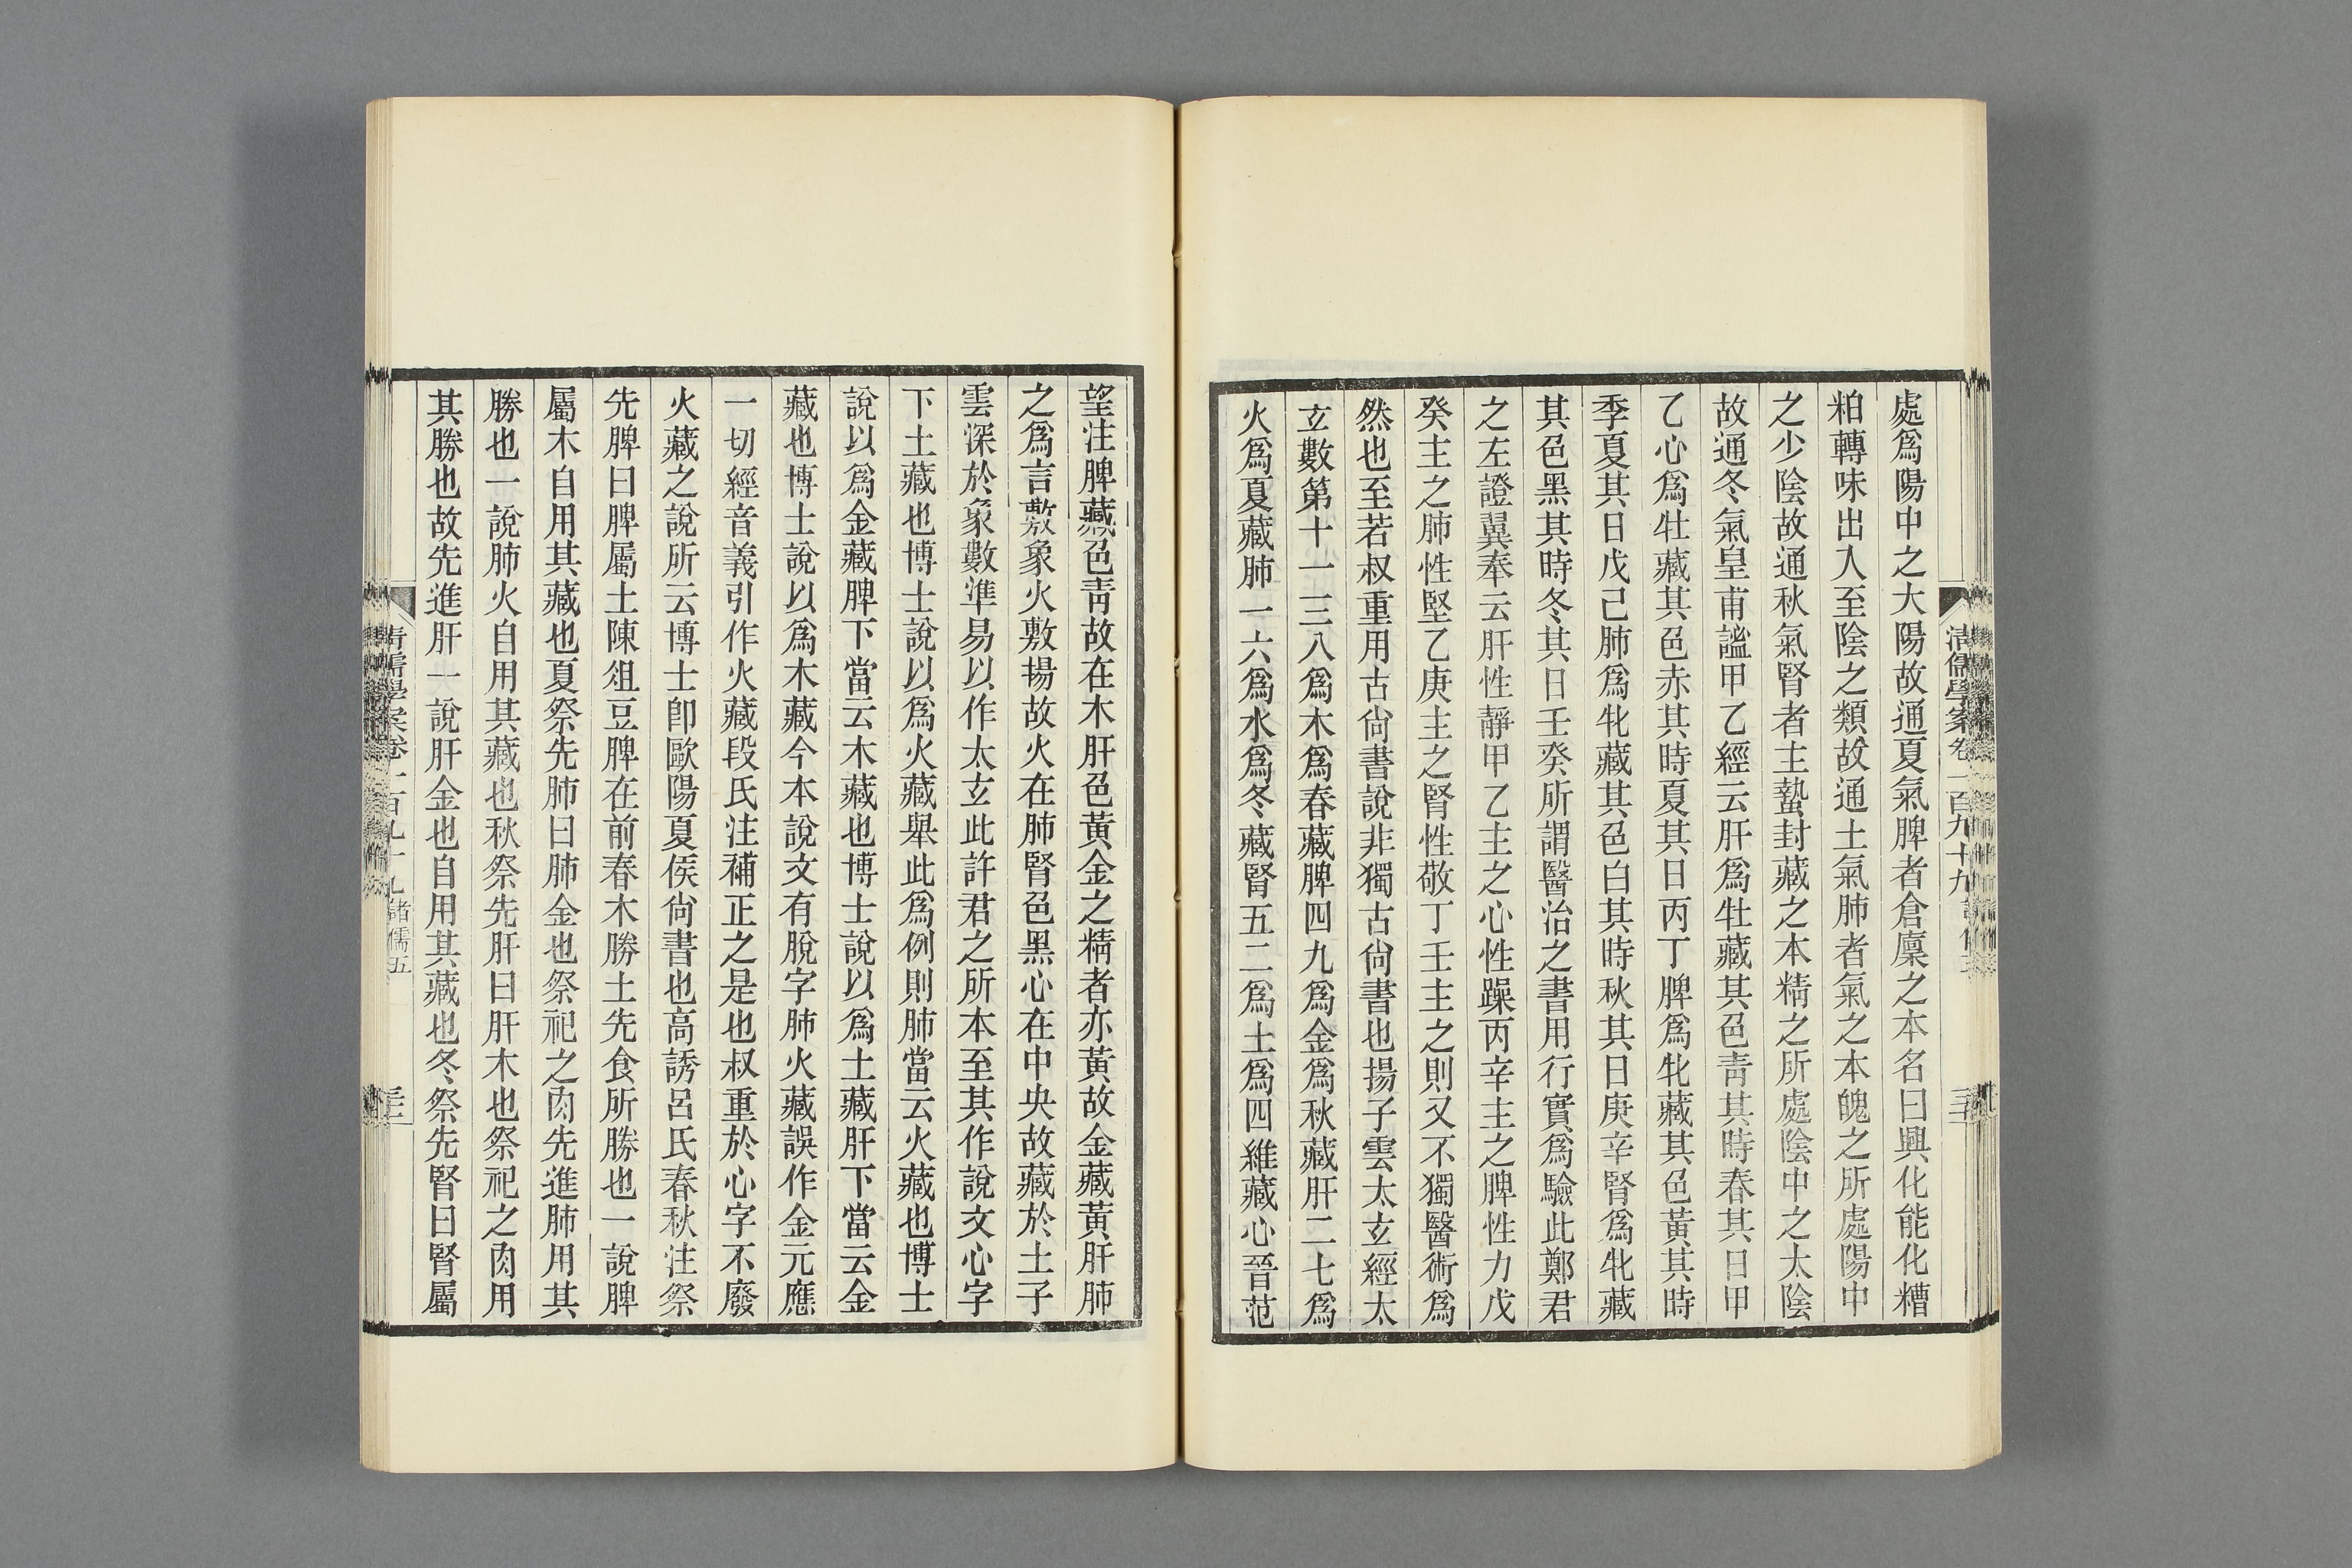 處爲陽中之大陽故通夏氣脾者倉廩之本名曰興化能化糟
粕轉味出入至陰之類故通土氣肺者氣之本魄之所處陽中
之少陰故通秋氣腎者主蟄封藏之本精之所處陰中之太陰
故通冬氣皇甫謐甲乙經云肝爲牡藏其色靑其時春其日甲
乙心爲牡藏其色赤其時夏其日丙丁脾爲牝藏其色黃其時
季夏其日戊己肺爲牝藏其色白其時秋其日庚辛腎爲牝藏
其色黑其時冬其日壬癸所謂醫治之書用行實爲驗此鄭君
之左證翼奉云肝性靜甲乙主之心性躁丙辛主之脾性力戊
癸主之肺性堅乙庚主之腎性敬丁壬主之則又不獨醫術爲
然也至若叔重用古尙書說非獨古尙書也揚子雲太玄經太
玄數第十一三八爲木爲春藏脾四九爲金爲秋藏肝二七爲
火爲夏藏肺一六爲水爲冬藏腎五二爲土爲四維藏心晉范
望注脾藏色靑故在木肝色黃金之精者亦黃故金藏黃肝肺
之爲言敷象火敷揚故火在肺腎色黑心在中央故藏於土子
雲深於象數準易以作太玄此許君之所本至其作說文心字
下土藏也博士說以爲火藏舉此爲例則肺當云火藏也博士
說以爲金藏脾下當云木藏也博士說以爲土藏肝下當云金
藏也博士說以爲木藏今本說文有脫字肺火藏誤作金元應
一切經音義引作火藏段氏注補正之是也叔重於心字不廢
火藏之說所云博士卽歐陽夏侯尙書也高誘呂氏春秋注祭
先脾曰脾屬土陳俎豆脾在前春木勝土先食所勝也一說脾
屬木自用其藏也夏祭先肺曰肺金也祭祀之肉先進肺用其
勝也一說肺火自用其藏也秋祭先肝曰肝木也祭祀之肉用
其勝也故先進肝一說肝金也自用其藏也冬祭先腎曰腎屬